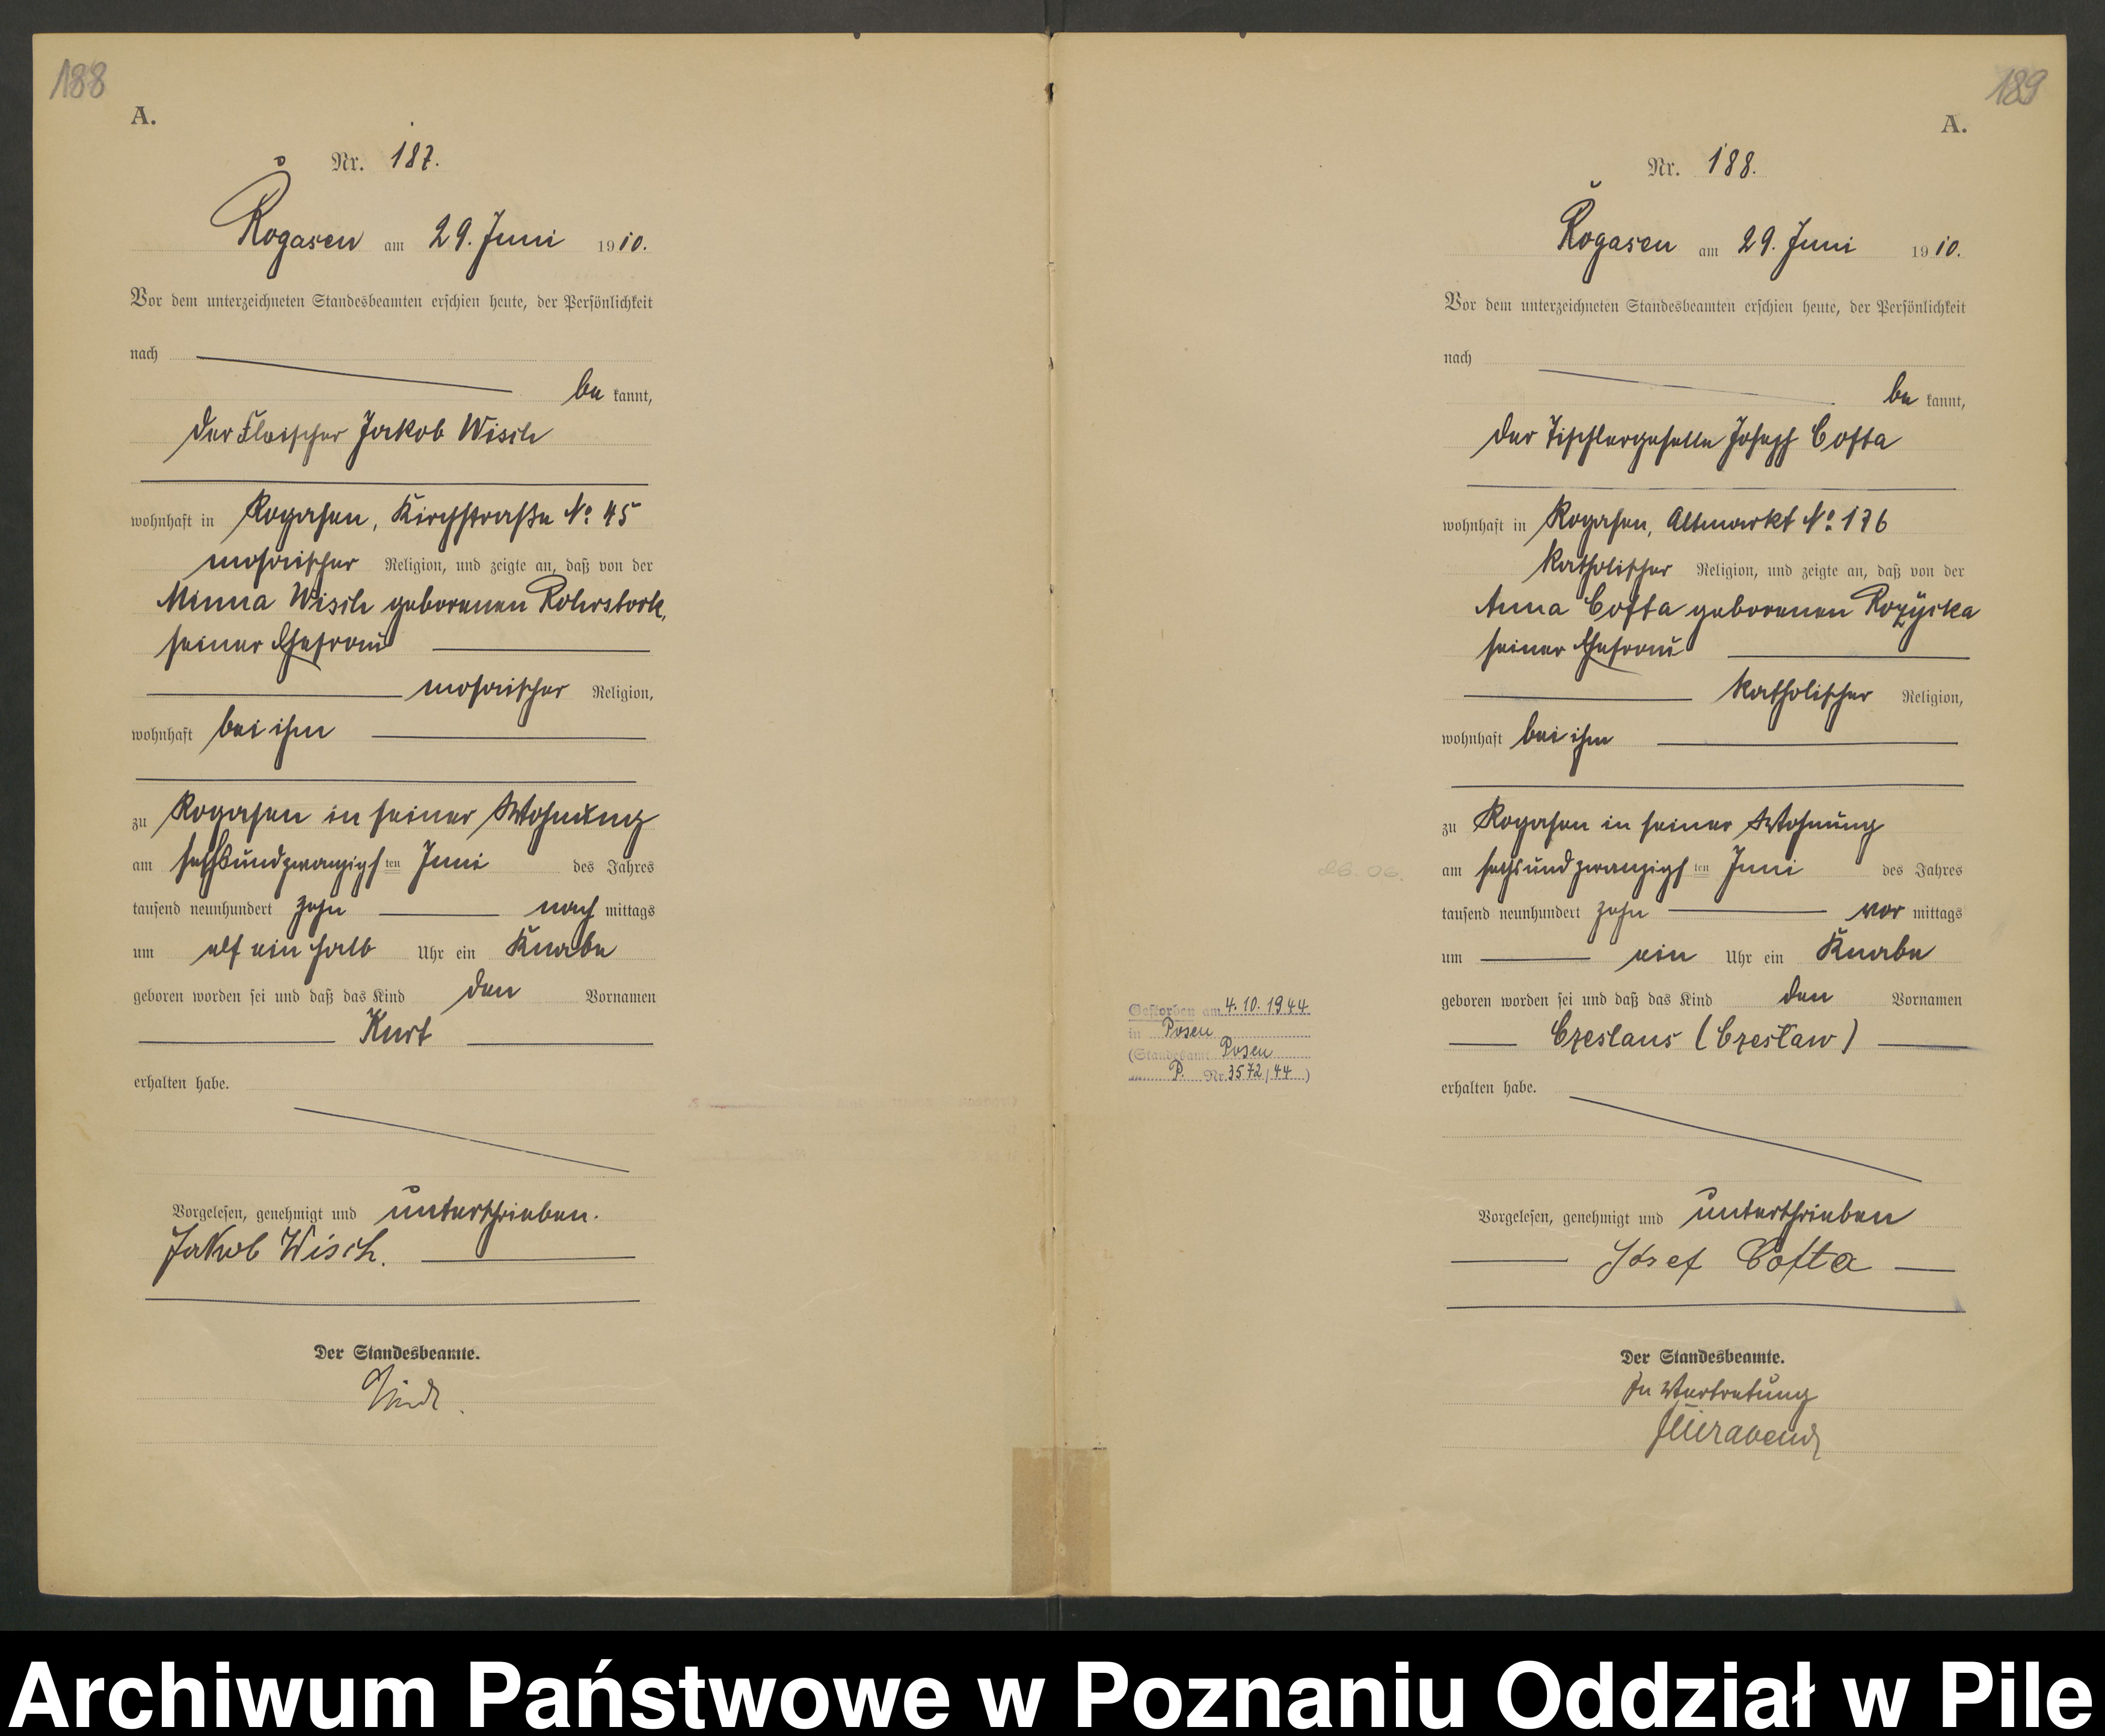 188
A.
Nr. 187.
Rogasen am 29. Juni 1910.
Vor dem unterzeichneten Standesbeamten erschien heute, der Persönlichkeit
nach
be kannt,
der Fleischer Jakob Wisch
wohnhaft in Rogasen, Kirchstraße No 45
mosaischer Religion, und zeigte an, daß von der
Minna Wisch geborenen Rohrstock,
seiner Ehefrau
mosaischer Religion,
wohnhaft bei ihm
zu Rogasen in seiner Wohnung
am sechsundzwanzigsten Juni des Jahres
tausend neunhundert zehn nach mittags
um elf ein halb Uhr ein Knabe
geboren worden sei und daß das Kind den Vornamen
Kurt
erhalten habe.
Vorgelesen, genehmigt und unterschrieben.
Jakob Wisch.
Der Standesbeamte.
189
A.
Nr. 188.
Rogasen am 29. Juni 1910.
Vor dem unterzeichneten Standesbeamten erschien heute, der Persönlichkeit
nach
be kannt,
der Tischlergeselle Joseph Cofta
wohnhaft in Rogasen, Altmarkt No 176
katholischer Religion, und zeigte an, daß von der
Anna Cofta geborenen Rozyska
seiner Ehefrau
katholischer Religion,
wohnhaft bei ihm
zu Rogasen in seiner Wohnung
26.06.
am sechsundzwanzigsten Juni des Jahres
tausend neunhundert zehn vor mittags
um ein Uhr ein Knabe
geboren worden sei und daß das Kind den Vornamen
Czeslaus (Czesław)
erhalten habe.
Gestorben am 4.10.1944
in Posen
(Standesamt Posen
P. Nr. 3572/44)
Vorgelesen, genehmigt und unterschrieben
Józef Cofta
Der Standesbeamte.
In Vertretung
Archiwum Państwowe w Poznaniu Oddział w Pile